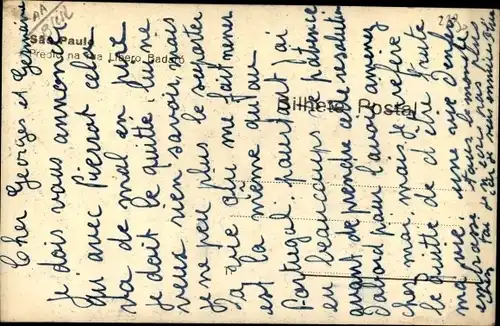 São Paulo
Predio na rua Libero Badaró
Bilhete Postal
Cher Georges et Germaine
je dois vous annoncer
qui avec Pierrot cela
va de mal en pire
je doit le quitté, lui ne
veus rien savoir, mais
je ne peu plus le suporter
la vie qu'il me fait mener
est la même qu'au
Portugal, pourtant j'ai
eu beaucoups de patience
avant de prendre cette resolution
d'abord pour l'avoir amener
chez moi, mais je prefère
le quitté de d'être frute
ma vie, une vie d'enfer